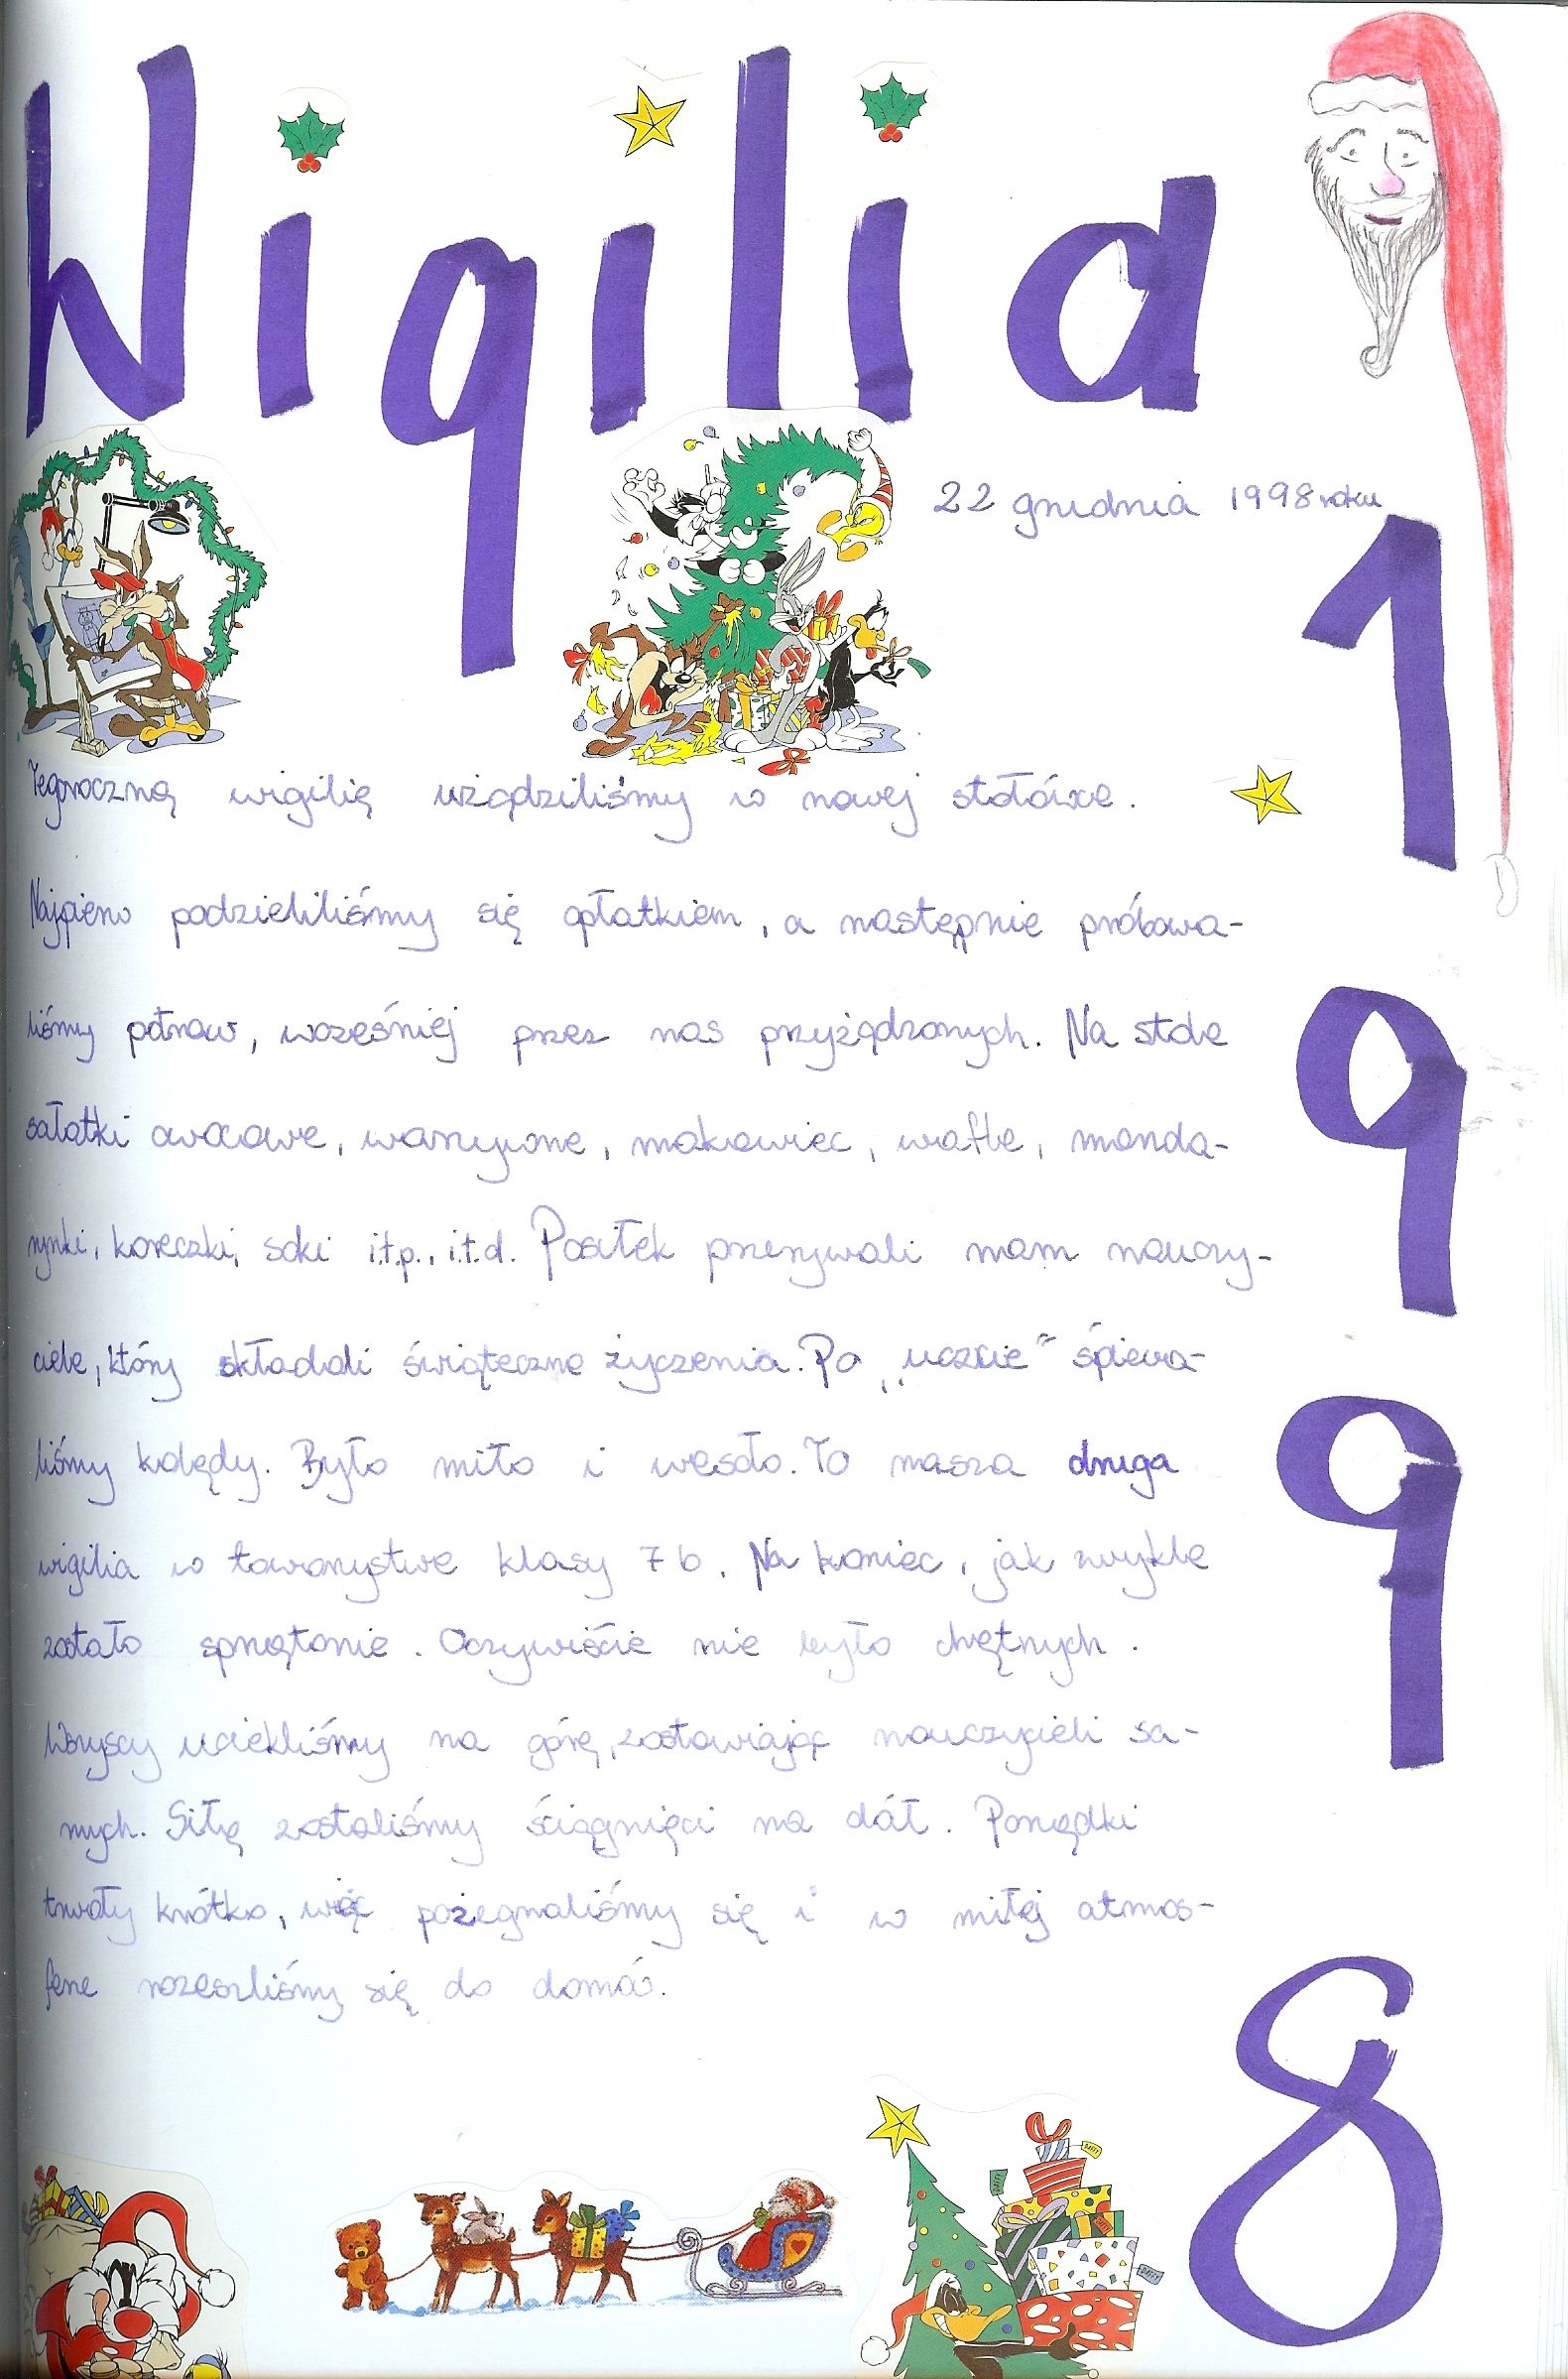 Wigilia
22 grudnia 1998 roku
1998
Tegoroczną wigilię użądziliśmy w nowej stołówce.
Najpierw podzieliliśmy się opłatkiem, a następnie próbowa-
liśmy potraw, wcześniej przez nas przyżądzonych. Na stole
sałatki owocowe, warzywne, makowiec, wafle, manda-
rynki, koreczki, soki i.t.p., i.t.d. Posiłek przerywali nam nauczy-
ciele, który składali świąteczne życzenia. Po „uczcie” śpiewa-
liśmy kolędy. Było miło i wesoło. To nasza druga
wigilia w towarzystwie klasy 7 b. Na koniec, jak zwykle
zostało sprzątanie. Oczywiście nie było chętnych.
Wszyscy uciekliśmy na górę, zostawiając nauczycieli sa-
mych. Siłą zostaliśmy ściągnięci na dół. Porządki
trwały krótko, więc pożegnaliśmy się i w miłej atmos-
ferze rozeszliśmy się do domów.